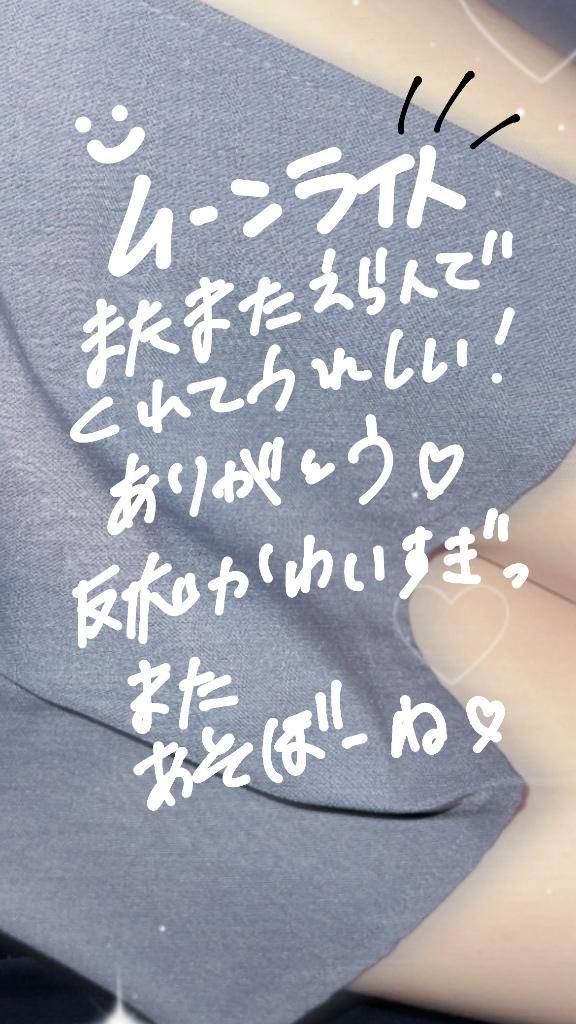 ムーンライト
またまたえらんで
くれてうれしい!
ありがとう♡
反応かわいすぎっ
また
あそぼーね♡